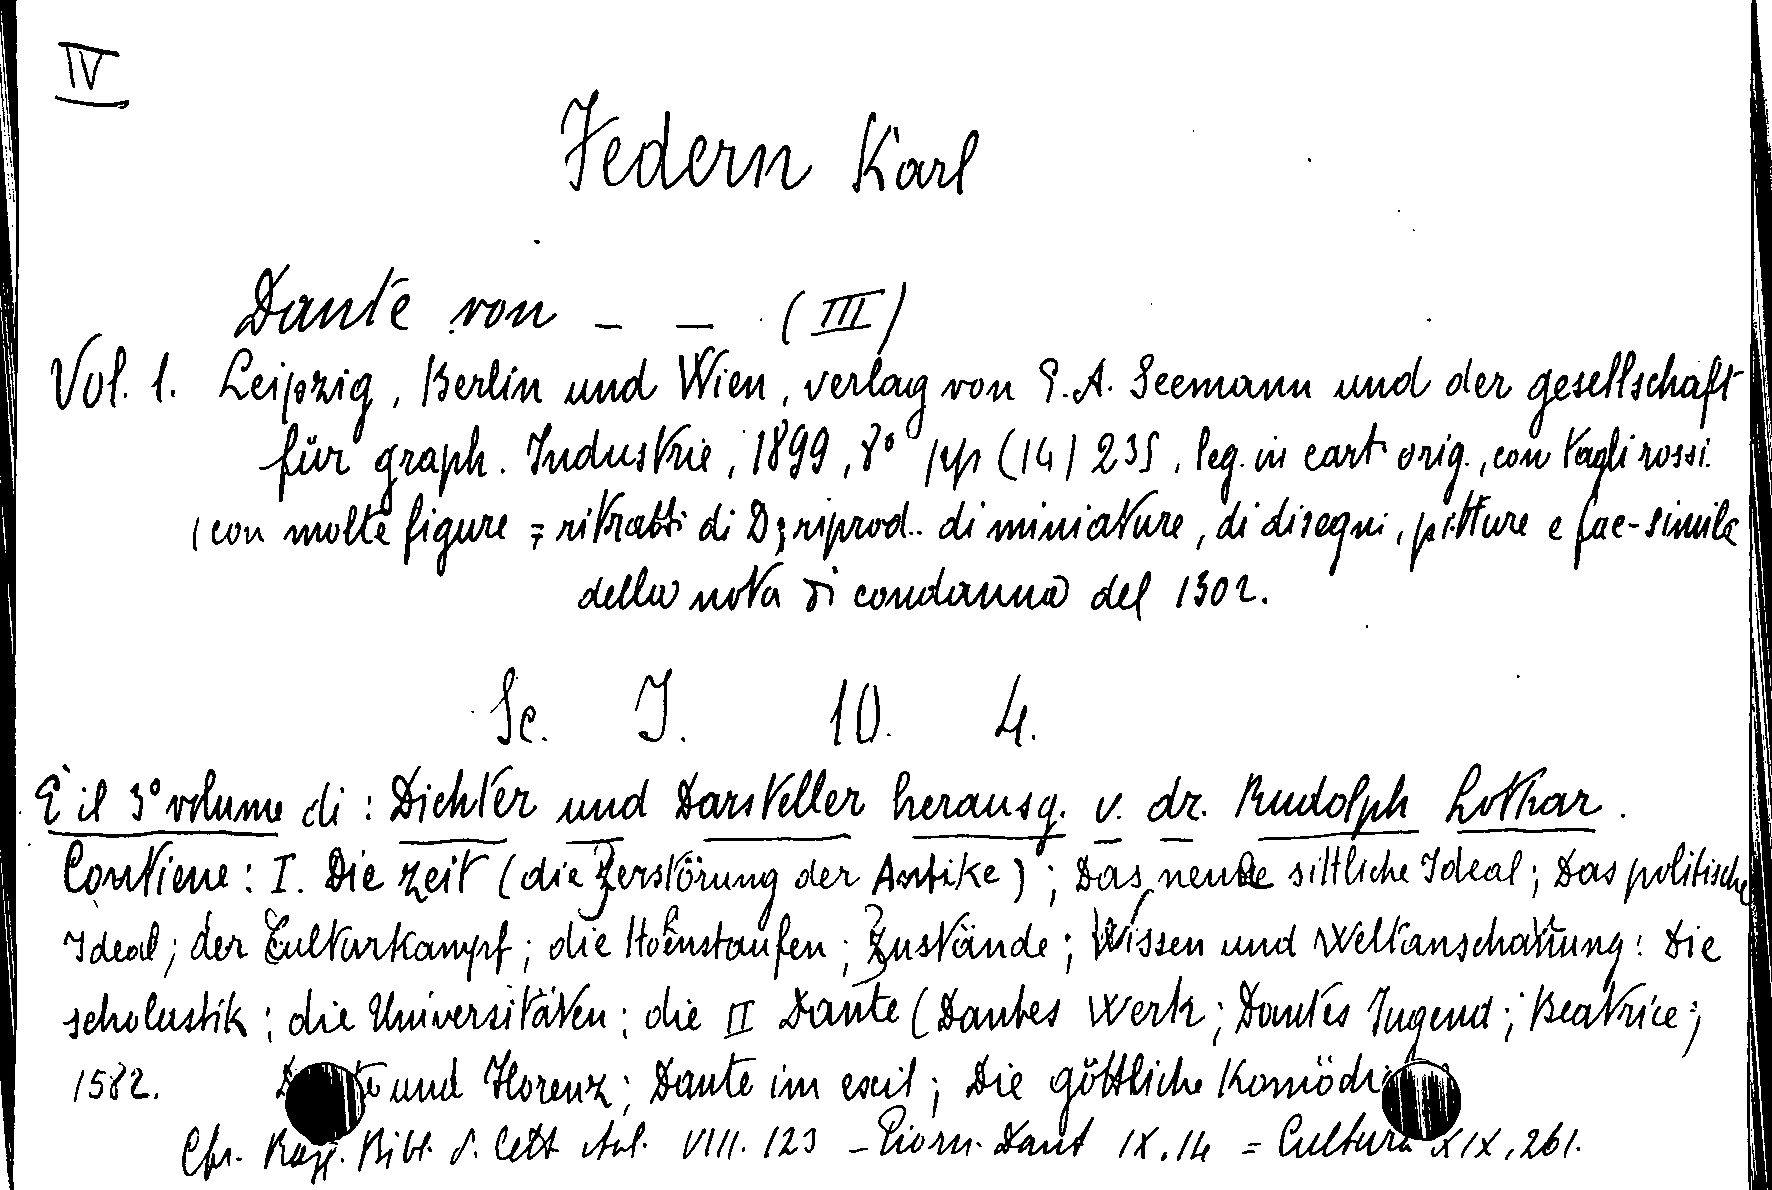 IV
Federn Karl
Dante von _ _ (III)
Vol. 1. Leipzig, Berlin und Wien, verlag von E. A. Seemann und der gesellschaft
für graph. Industrie, 1899, 8° pp (14) 235, leg. in cart. orig., con tagli rossi.
(con molte figure = ritratti di D; riprod.. di miniature, di disegni, pitture e fac-simile
della nota di condanna del 1302.
Sc. I. 10. 4.
È il 3° volume di: Dichter und Darsteller herausg. v. dr. Rudolph Lothar.
Contiene: I. Die Zeit (die Zerstörung der Antike); Das neue sittliche Ideal; Das politische
Ideal; der Culturkampf; die Hohenstaufen; Zustände; Wissen und Weltanschauung: Die
scholastik; die Universitäten; die II Dante (Dantes Werk; Dantes Jugend; Beatrice;
1582. und Florenz; Dante im exil; Die göttliche Komödi
Cfr. Bibl. d. Lett. ital. VIII. 123 – Giorn. Dant IX. 14 = Cultura XIX, 261.